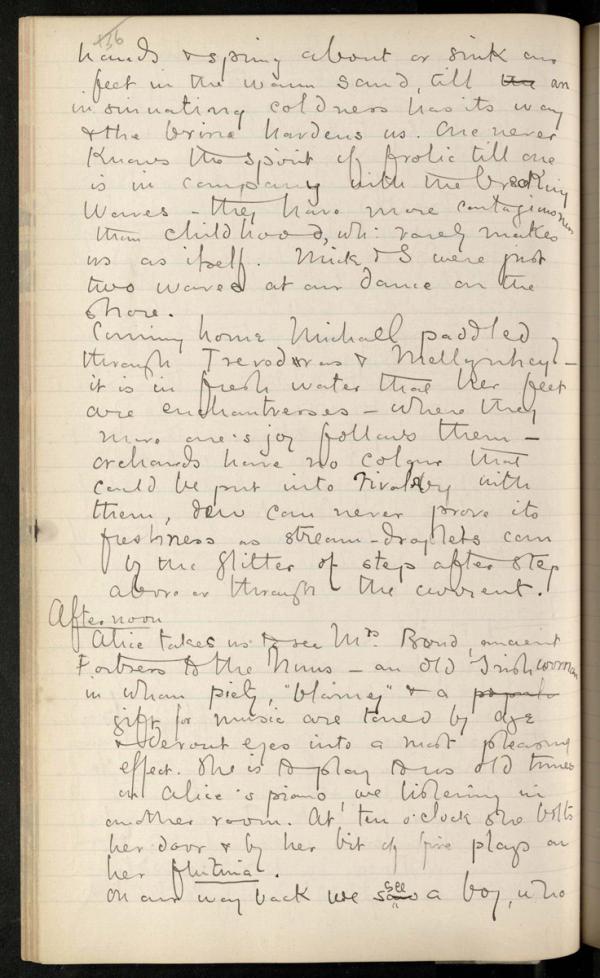 136
hands & spring about or sink our
feet in the warm sand, till the an
insinuating coldness has its way
& the brine hardens us. One never
knows the spirit of frolic till one
is in company with the breaking
waves – they have more contagiousness
than childhood, wh: rarely makes
us as itself. Mick & I were just
two waves at our dance on the
shore.
Coming home Michael paddled
through &
it is in fresh water that her feet
are enchantresses – where they
move one's joy follows them –
orchards have no colour that
could be put into rivalry with
them, dew can never prove its
freshness as stream-droplets can
by the glitter of step after step
above or through the current.
Afternoon
Alice takes us to see Mrs. Bond, ancient
Portress to the Nuns – an old Irish woman
in whom piety, "blarney" & a
gift for music are toned by age
& devout eyes into a most pleasing
effect. She is to play to us old tunes
on Alice's piano, we listening in
another room. At ten o'clock she bolts
her door & by her bit of fire plays on
her flutina.
On our way back we saw see a boy, who